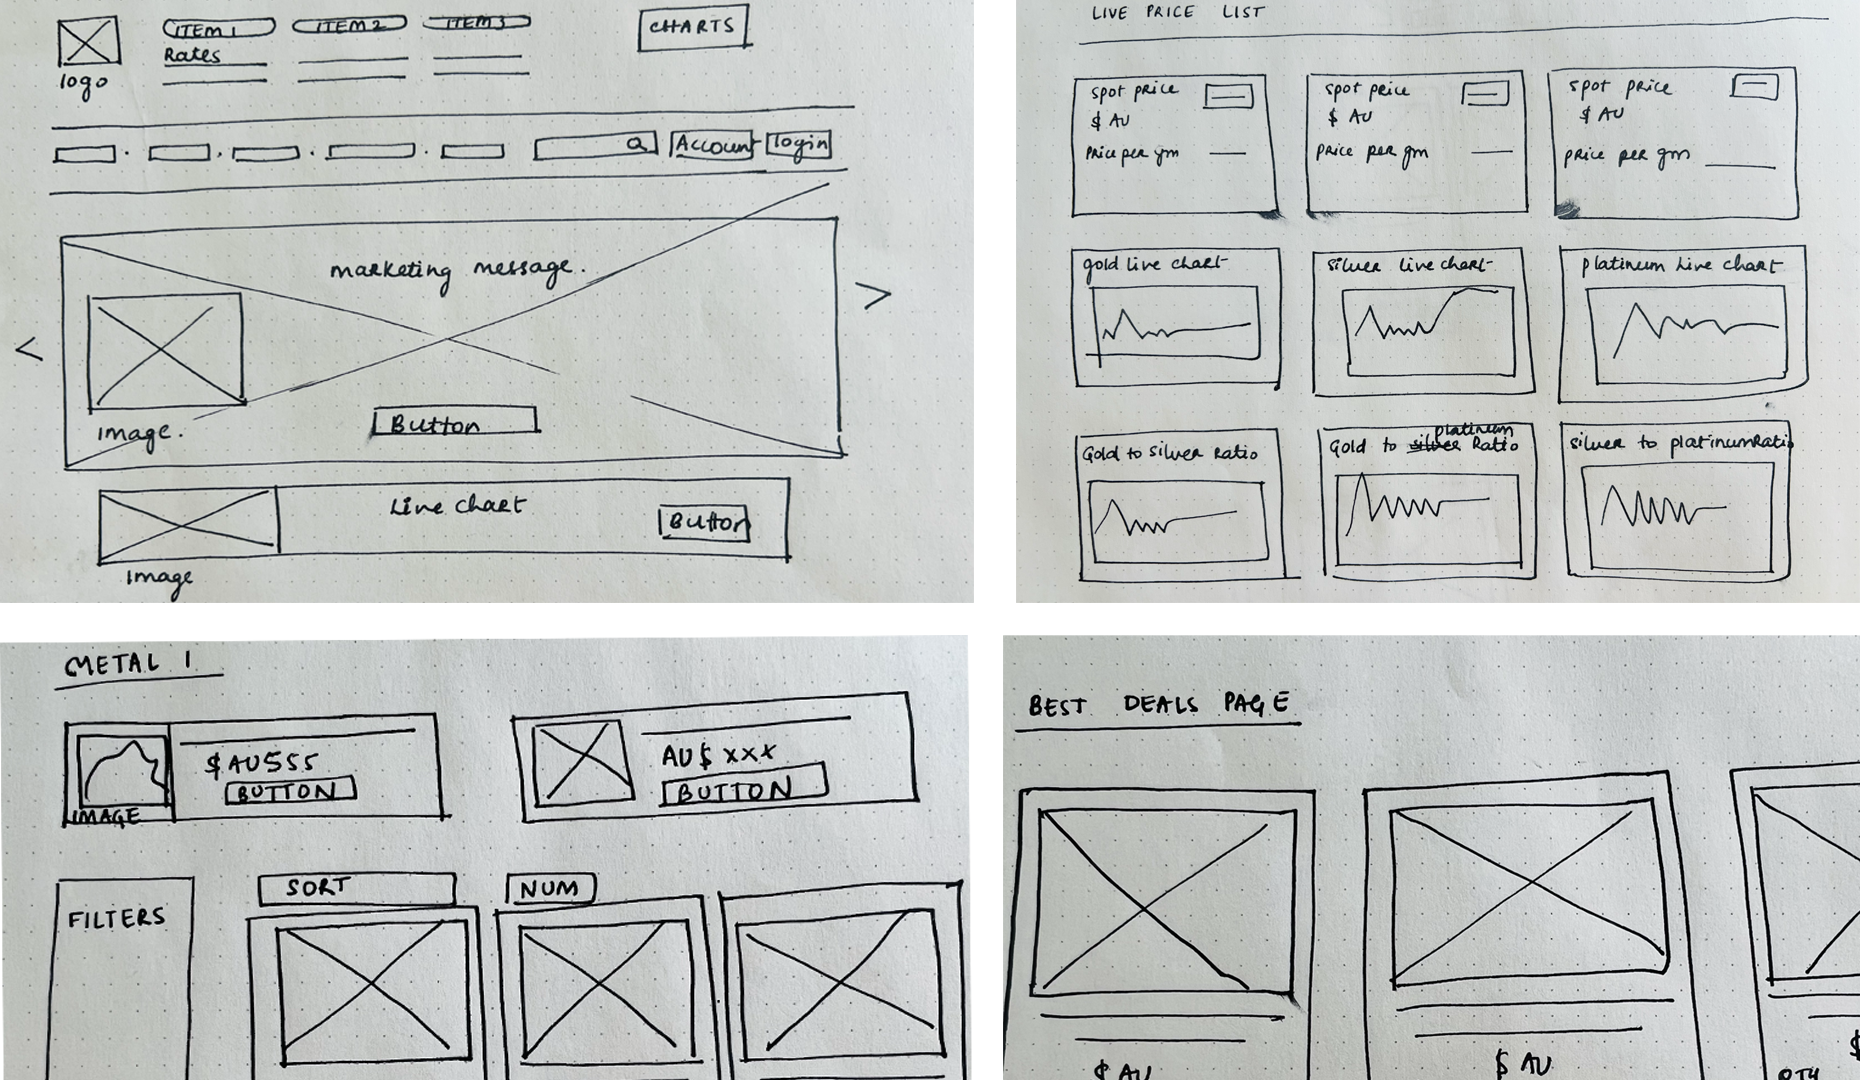 ITEM 1
ITEM 2
ITEM 3
CHARTS
Rates
logo
Account
login
marketing message.
<
>
image.
Button
Live chart
Button
image
LIVE PRICE LIST
spot price
$ AU
Price per gm
spot price
$ AU
Price per gm
spot price
$ AU
price per gm
gold live chart
silver live chart
platinum live chart
Gold to silver Ratio
platinum
Gold to silver Ratio
silver to platinum Ratio
METAL 1
$ AU555
BUTTON
IMAGE
AU$ xxx
BUTTON
FILTERS
SORT
NUM
BEST DEALS PAGE
$ AU
$ AU
$
QTY